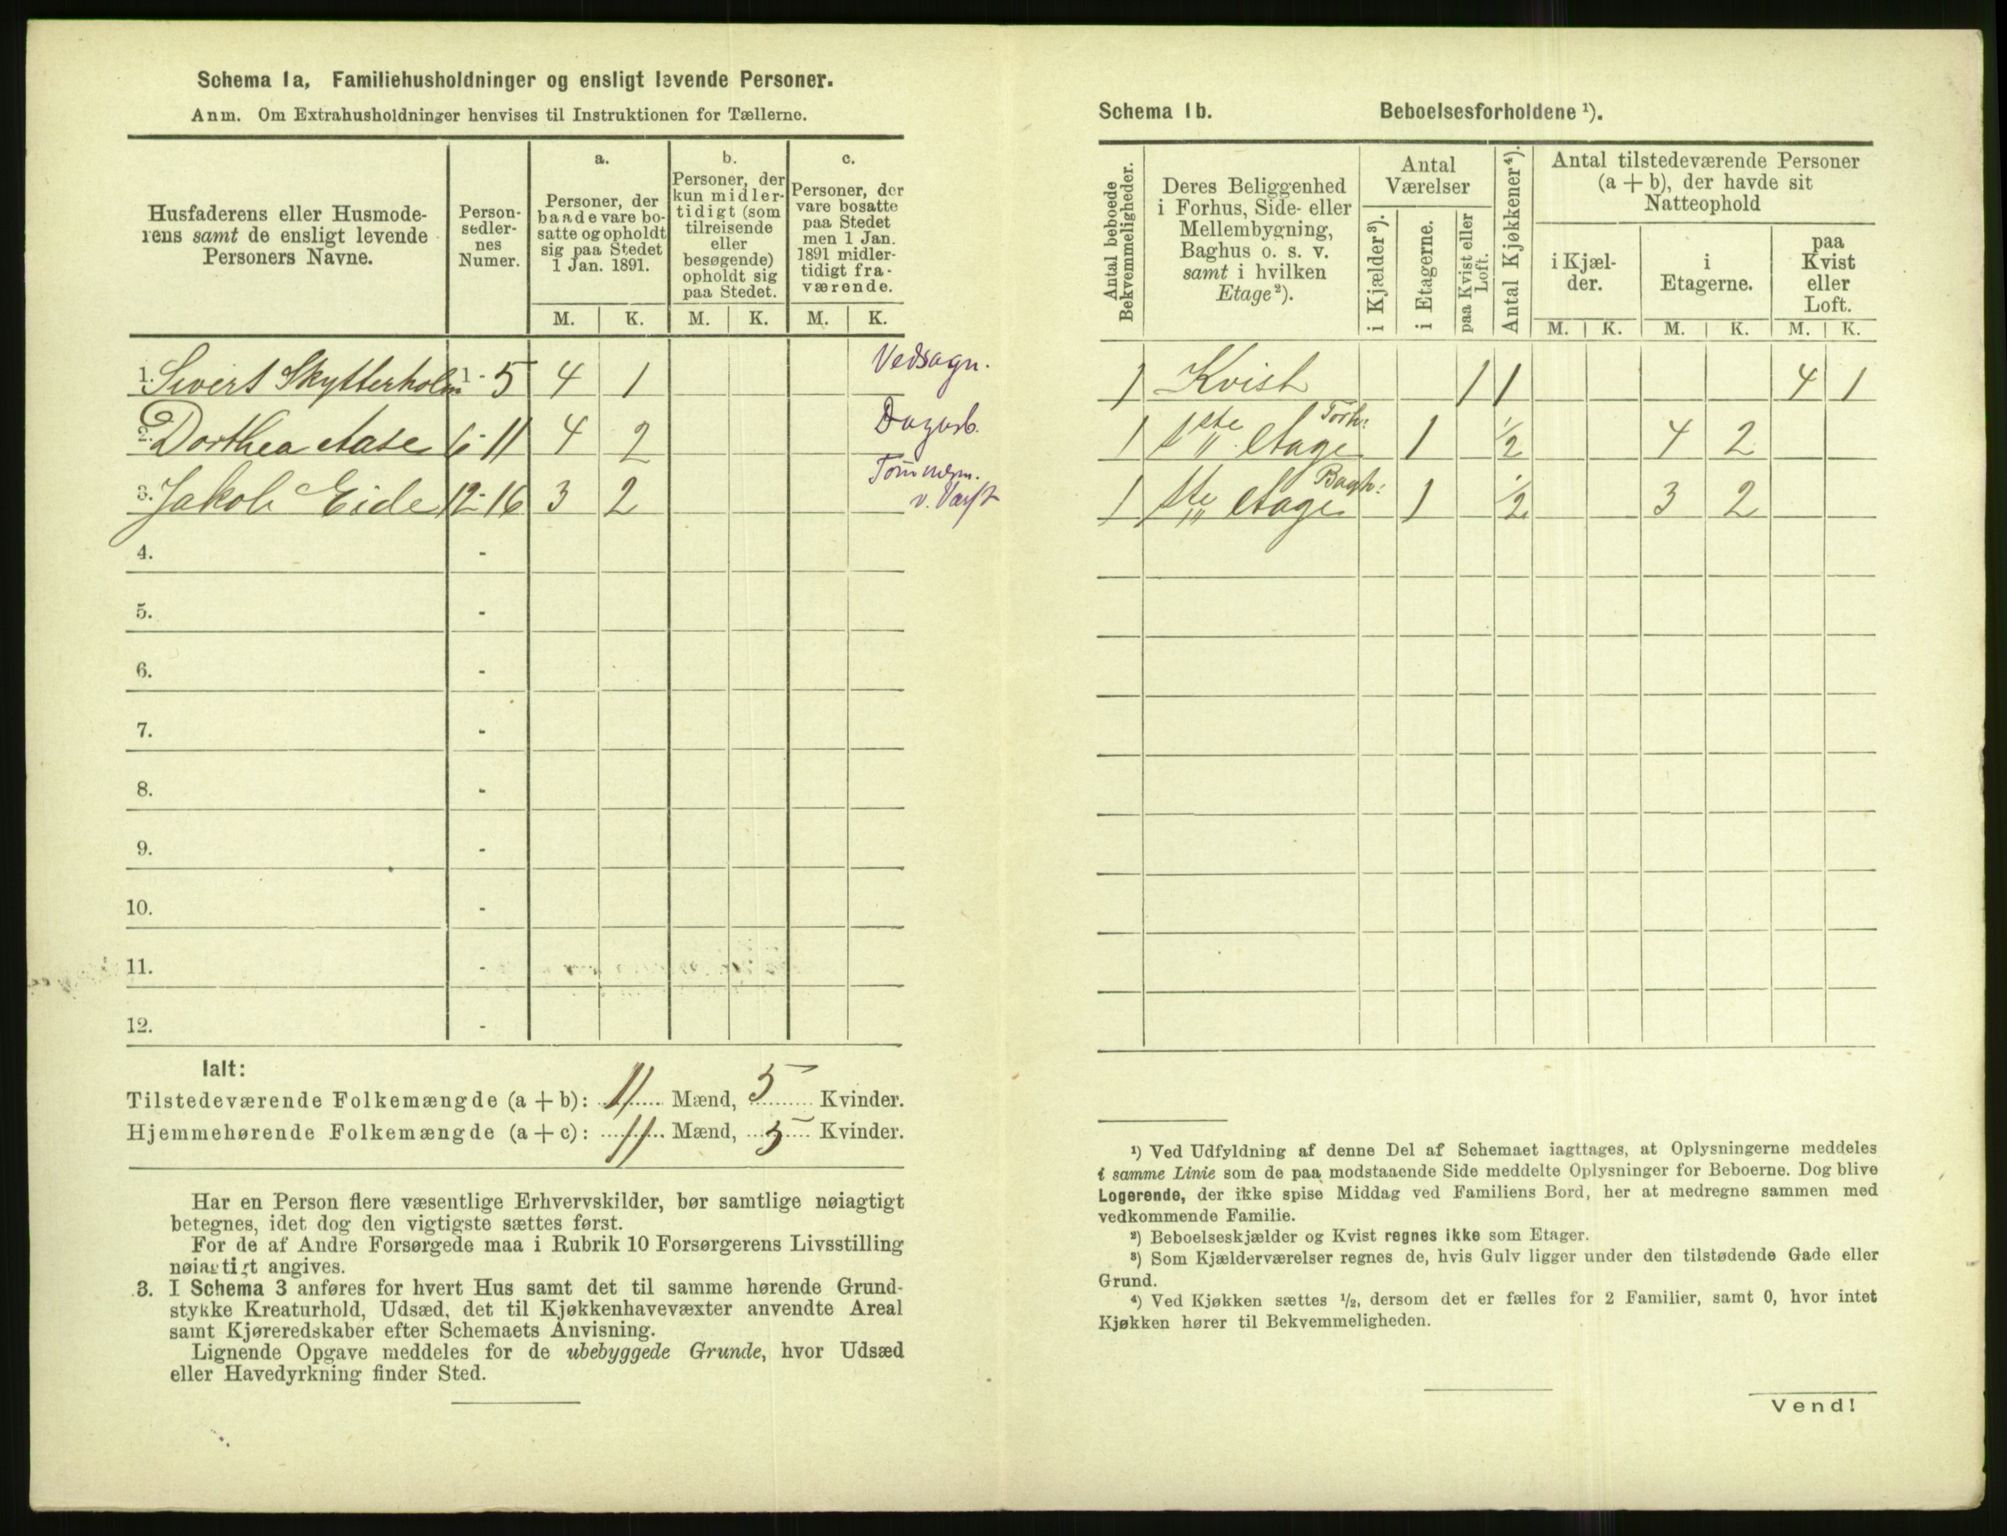 Schema 1a, Familiehusholdninger og ensligt levende Personer.
Anm. Om Extrahusholdninger henvises til Instruktionen for Tællerne.
Husfaderens eller Husmode-
rens samt de ensligt levende
Personers Navne.
Person-
sedler-
nes
Numer.
a.
Personer, der
baade vare bo-
satte og opholdt
sig paa Stedet
1 Jan. 1891.
b.
Personer, der
kun midler-
tidigt (som
tilreisende
eller
besøgende)
opholdt sig
paa Stedet.
c.
Personer, der
vare bosatte
paa Stedet
men 1 Jan.
1891 midler-
tidigt fra-
værende.
M. K. M. K. M. K.
1. Sivert Skytterholm 1 - 5 4 1 Vedsagn.
2. Dorthea Aase 6 - 11 4 2 Dagarb.
3. Jakob Eide 12 - 16 3 2 Tømmerm.
v. Værft
4. -
5. -
6. -
7. -
8. -
9. -
10. -
11. -
12. -
Ialt:
Tilstedeværende Folkemængde (a + b): 11 Mænd, 5 Kvinder.
Hjemmehørende Folkemængde (a + c): 11 Mænd, 5 Kvinder.
Har en Person flere væsentlige Erhvervskilder, bør samtlige nøiagtigt
betegnes, idet dog den vigtigste sættes først.
For de af Andre Forsørgede maa i Rubrik 10 Forsørgerens Livsstilling
nøiagtigt angives.
3. I Schema 3 anføres for hvert Hus samt det til samme hørende Grund-
stykke Kreaturhold, Udsæd, det til Kjøkkenhavevæxter anvendte Areal
samt Kjøreredskaber efter Schemaets Anvisning.
Lignende Opgave meddeles for de ubebyggede Grunde, hvor Udsæd
eller Havedyrkning finder Sted.
Schema 1b. Beboelsesforholdene ¹).
Antal beboede
Bekvemmeligheder.
Deres Beliggenhed
i Forhus, Side- eller
Mellembygning,
Baghus o. s. v.
samt i hvilken
Etage ²).
Antal
Værelser
i Kjælder ³).
i Etagerne.
paa Kvist eller
Loft.
Antal Kjøkkener ⁴).
Antal tilstedeværende Personer
(a + b), der havde sit
Natteophold
i Kjæl-
der.
i
Etagerne.
paa
Kvist
eller
Loft.
M. K. M. K. M. K.
1 Kvist 1 1 4 1
1 1ste Etage Forh: 1 1/2 4 2
1 1ste Etage Bagh: 1 1/2 3 2
¹) Ved Udfyldning af denne Del af Schemaet iagttages, at Oplysningerne meddeles
i samme Linie som de paa modstaaende Side meddelte Oplysninger for Beboerne. Dog blive
Logerende, der ikke spise Middag ved Familiens Bord, her at medregne sammen med
vedkommende Familie.
²) Beboelseskjælder og Kvist regnes ikke som Etager.
³) Som Kjælderværelser regnes de, hvis Gulv ligger under den tilstødende Gade eller
Grund.
⁴) Ved Kjøkken sættes ½, dersom det er fælles for 2 Familier, samt 0, hvor intet
Kjøkken hører til Bekvemmeligheden.
Vend!